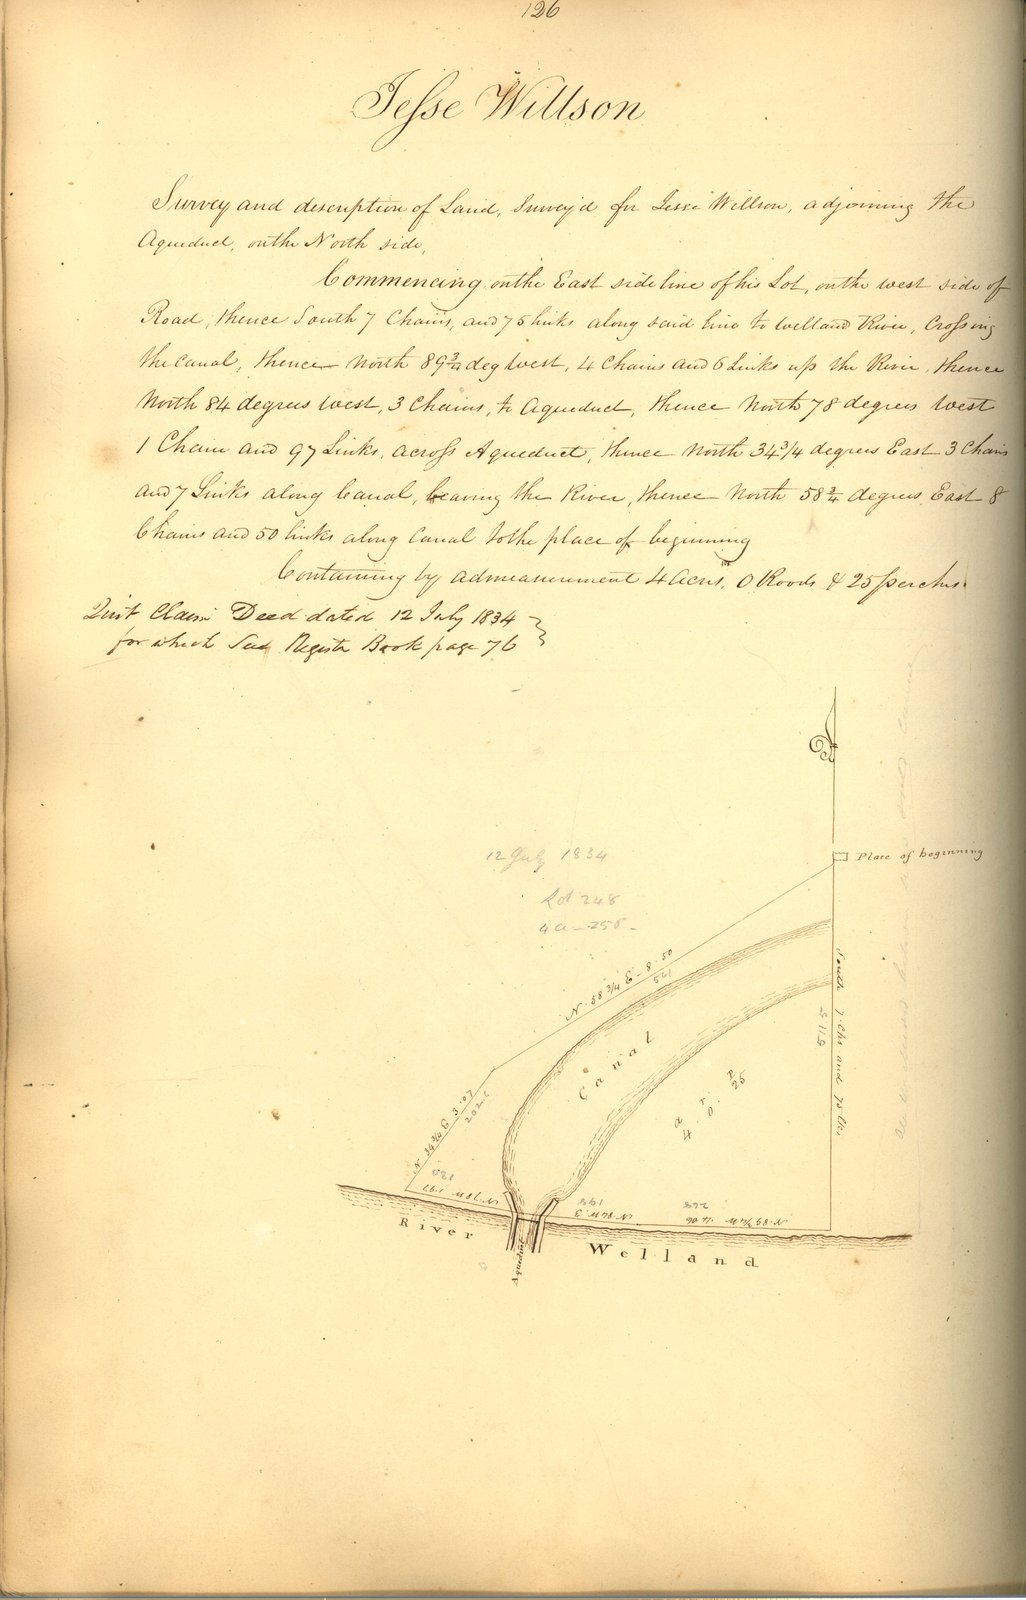 126
Jesse Willson
Survey and description of Land, Survey'd for Jesse Willson, adjoining the
Aqueduct, on the North side,
Commencing on the East side line of his Lot, on the west side of
Road, thence South 7 Chains, and 75 links along said line to Welland River, Crossing
the Canal, thence North 89¾ deg West, 4 Chains and 6 Links up the River, thence
North 84 degrees West, 3 Chains, to Aqueduct, thence North 78 degrees West
1 Chain and 97 Links, across Aqueduct, thence North 34¾ degrees East 3 Chains
and 7 Links along Canal, leaving the River, thence North 58¾ degrees East 8
Chains and 50 links along Canal to the place of beginning
Containing by admeasurement 4 Acres, 0 Roods & 25 perches
Quit Claim Deed dated 12 July 1834
for which See Register Book page 76
12 July 1834
Lot 248
4a - 25
Place of beginning
N. 58¾ E - 8.50
561
South 7 Chs and 75 lks
511.5
Canal
a r p
4. 0. 25
N 34¾ E 3.07
202.6
N. 78 W 1.97
130
N. 84 W. 3
198
N 89¾ W 4.06
268
River Welland
Aqueduct